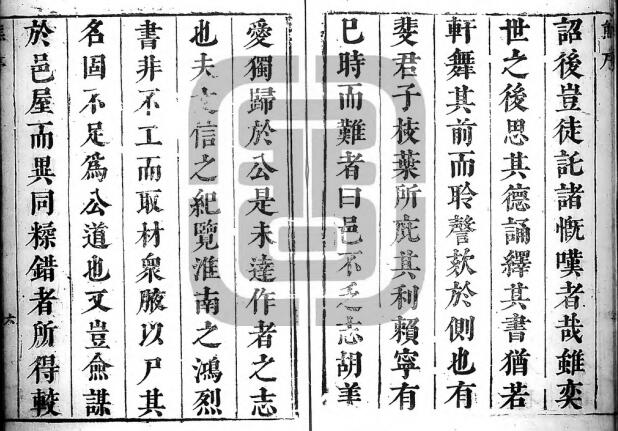 詔後豈徒託諸慨嘆者哉雖奕
世之後思其德誦繹其書猶若
軒舞其前而聆謦欬於側也有
斐君子枝葉所庇其利賴寧有
巳時而難者曰邑不乏志胡羊
愛獨歸於公是未達作者之志
也夫文信之紀覽淮南之鴻烈
書非不工而取材衆腋以尸其
名固不足爲公道也又豈僉謀
於邑屋而異同糅錯者所得較
六